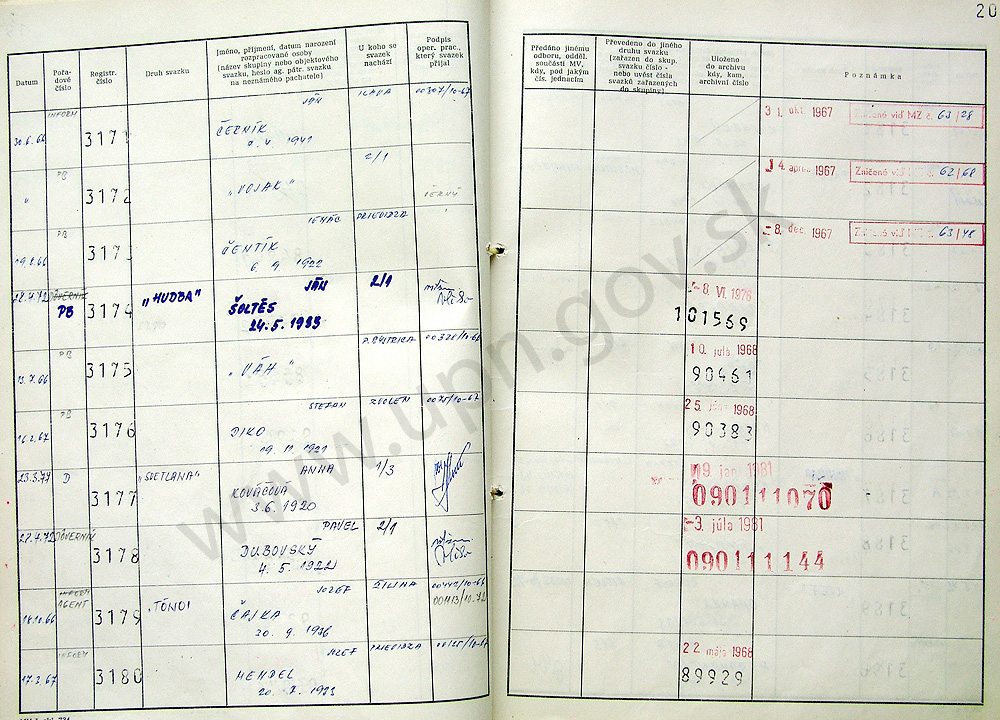 20
Datum
Pořadové číslo
Registr. číslo
Druh svazku
Jméno, příjmení, datum narození
rozpracované osoby
(název skupiny nebo objektového
svazku, heslo ag. pátr. svazku
na neznámého pachatele)
U koho se
svazek
nachází
Podpis
oper. prac.,
který svazek
přijal
Předáno jinému
odboru, odděl.
součásti MV,
kdy, pod jakým
čís. jednacím
Převedeno do jiného
druhu svazku
(zařazen do skup.
svazku číslo -
nebo uvést čísla
svazků zařazených
do skupiny)
Uloženo
do archivu
kdy, kam,
archivní číslo
Poznámka
INFORM JÁN ILAVA 00307/10-67
30.6.66 3171 ČERNÍK
31. okt. 1967 Zničené viď MZ č. 63/28
PB 2/1
" 3172 „VOJAK" ČERNÝ
4. apríl 1967 Zničené viď MZ č. 62/68
PB IGNÁC PRIEVIDZA
3173 ČENTÍK
6. 9. 1922
-8. dec. 1967 63/48
28.4.72 DÔVERNÍK JÁN 2/1
PB 3174 „HUDBA" ŠOLTÉS
24.5.1933
-8. VI. 1976
101569
PB P. BYSTRICA 00328/10-66
13.7.66 3175 „VÁH"
10. júla 1968
90461
PB ŠTEFAN ZVOLEN
16.2.67 3176 DIKO
19. 11. 1921
25. 1968
90383
23.3.77 D „SVETLANA" ANNA 1/3
3177 KOVÁČOVÁ
3.6.1920
19. jan. 1981
090111070
28.4.72 DÔVERNÍK PAVEL 2/1
3178 DUBOVSKÝ
4. 5. 1922
-3. júla 1981
090111144
INFORM JOZEF ŽILINA 00442/10-66
AGENT
18.10.66 3179 „TÓNO" ČAJKA
20. 9. 1936
INFORM JOZEF PRIEVIDZA
17.3.67 3180 MENDEL
22. mája 1968
89929
www.upn.gov.sk